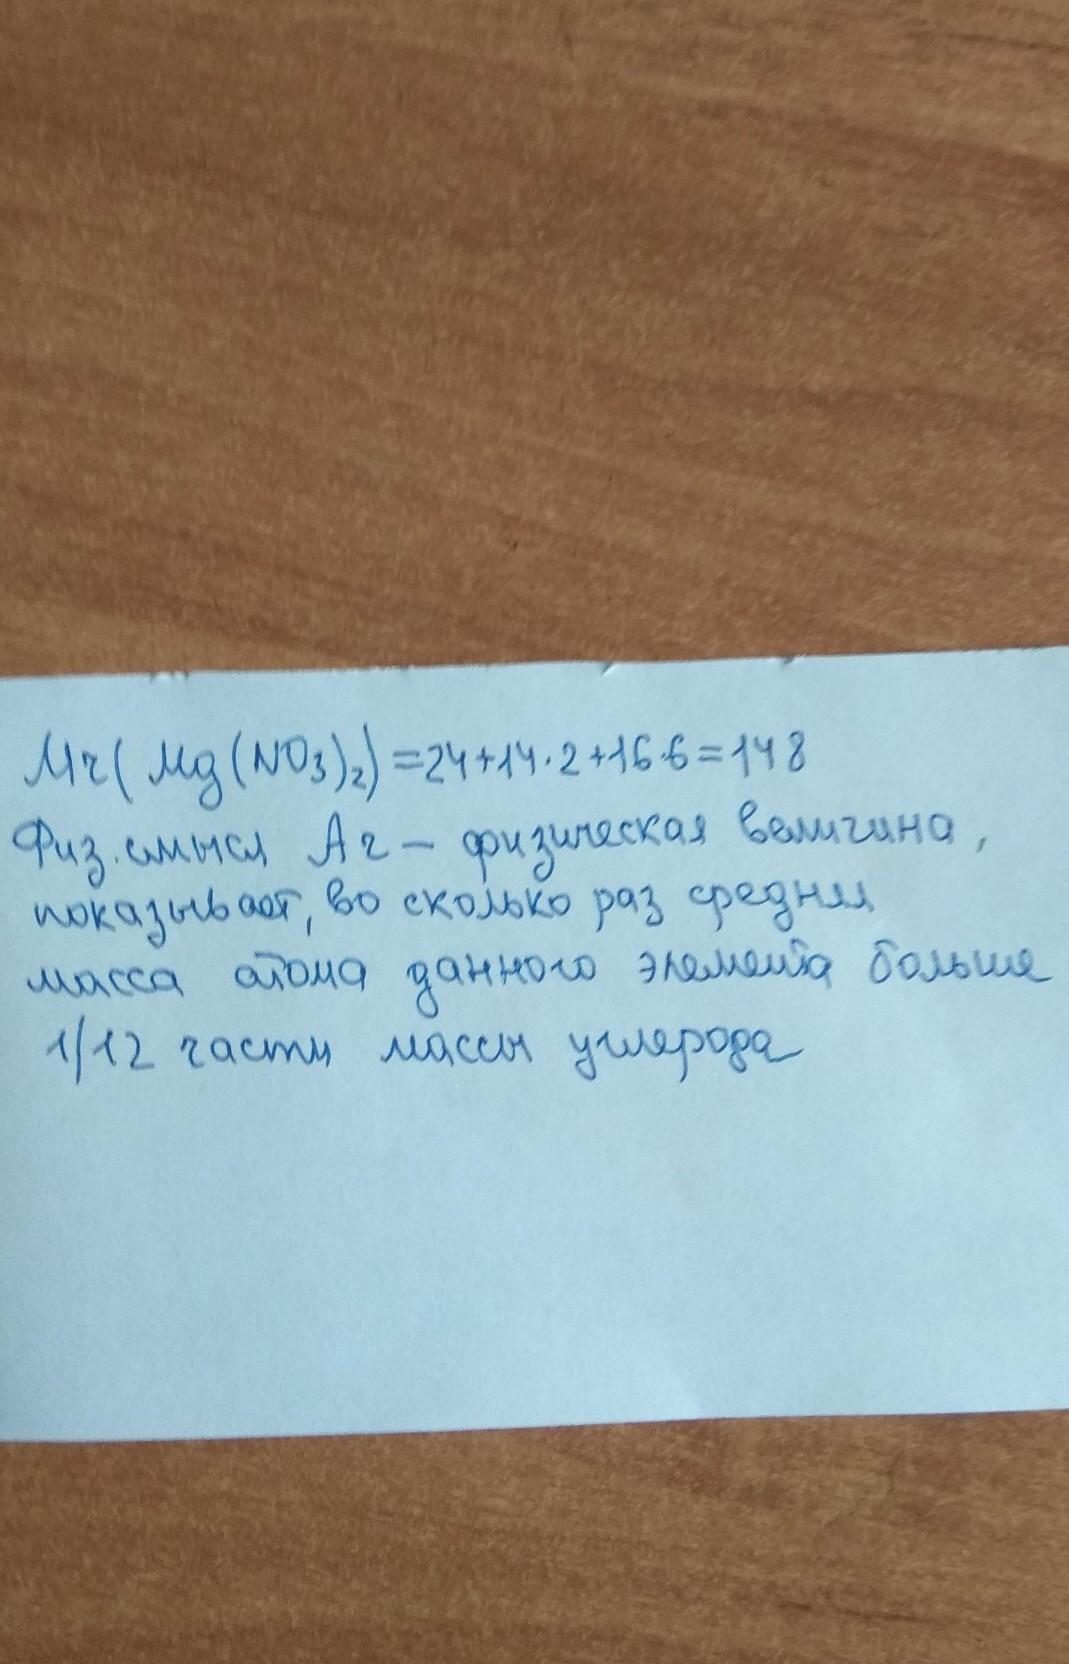 Mr(Mg(NO3)2)=24+14·2+16·6=148
Физ.смысл Ar – физическая величина,
показывает, во сколько раз средняя
масса атома данного элемента больше
1/12 части массы углерода